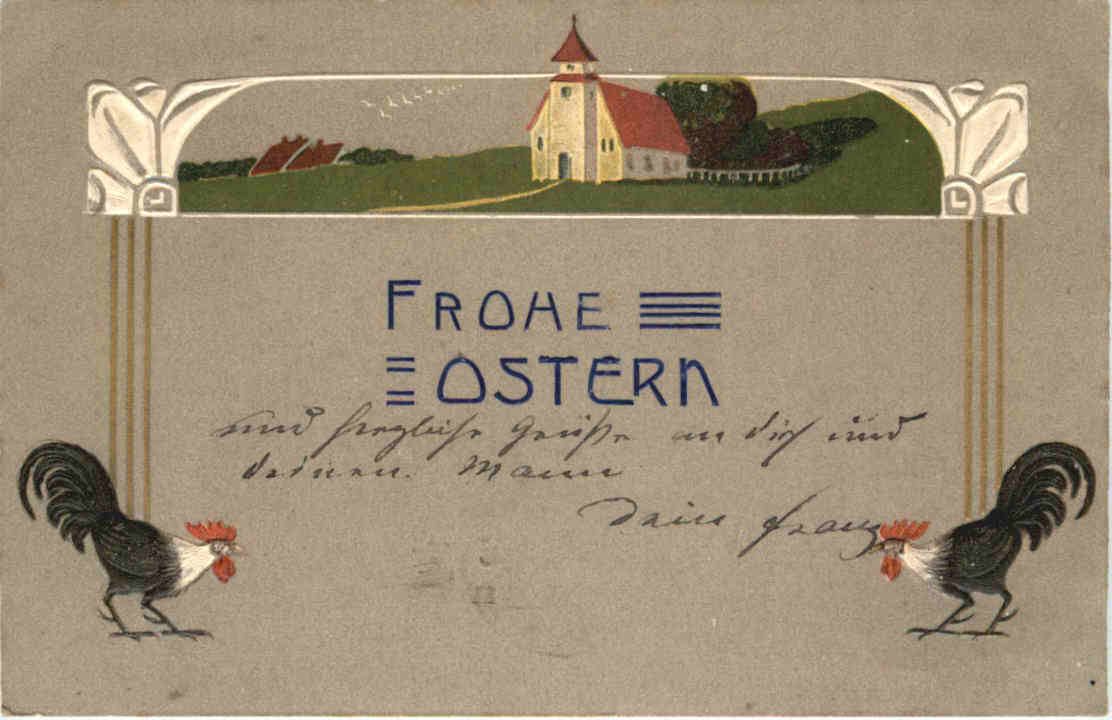 FROHE
OSTERN
und herzliche Grüße an dich und
deinen Mann
Dein Franz